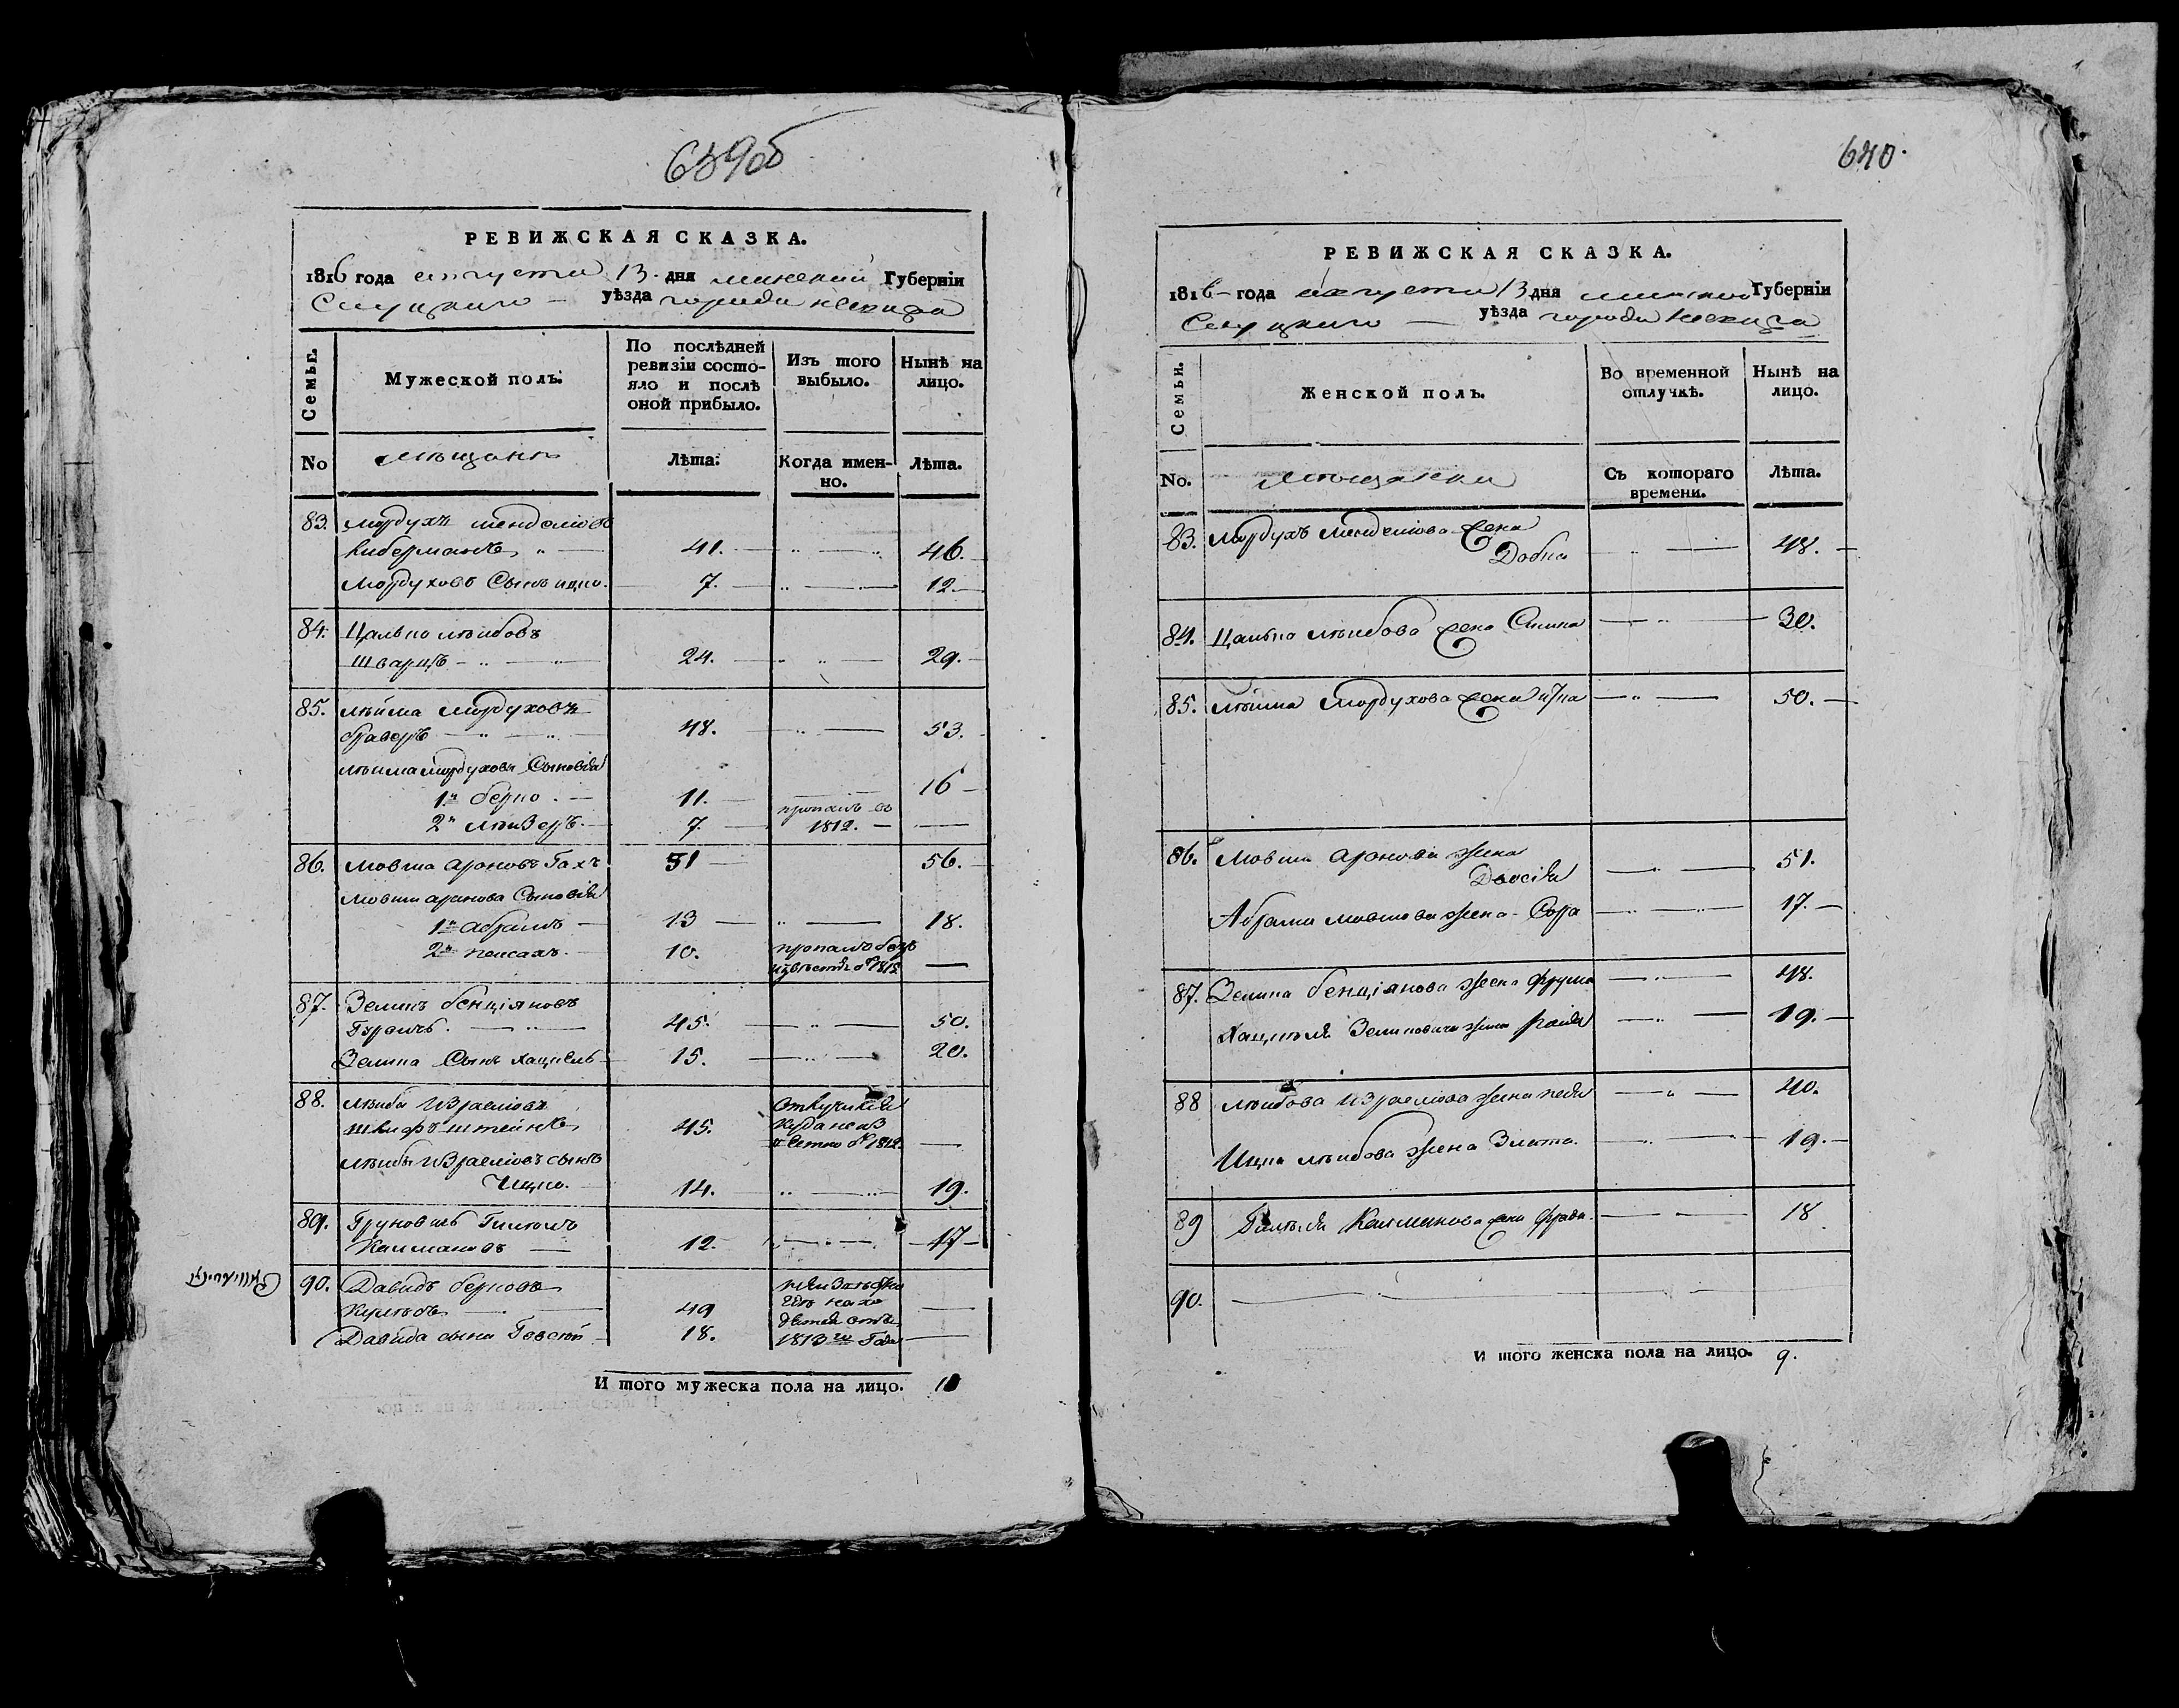 639об
РЕВИЖСКАЯ СКАЗКА.
1816 года августа 13. дня минской Губерніи
Слуцкаго уѣзда города несвижа
Семьи.
Мужеской полъ.
По послѣдней
ревизіи состо-
яло и послѣ
оной прибыло.
Изъ того
выбыло.
Нынѣ на
лицо.
No
мѣщане
Лѣта.
Когда имен-
но.
Лѣта.
83. Мордухъ менделіовъ
либерманъ 41. 46.
Мордуховъ Сынъ ицко. 7. 12.
84. Цалько лѣибовъ
шварцъ 24. 29.
85. Мордуховъ
48. 53.
Мордухова Сыновія
1й берко 11. 16
2й лѣизеръ 7. пропалъ въ
1812.
86. Мовша ароновъ Гахъ 51 56.
Мовши аронова Сыновія
1й абрамъ 13 18.
2й пеисахъ. 10. пропалъ безъ
извѣстія 1812
87. Зеликъ бенціяновъ
45. 50.
Зелика Сынъ хацкель 15. 20.
88. лѣиба Израеліовъ
45. 1812.
лѣибы Израеліовъ сынъ
Ицко. 14. 19.
89. Калмановъ 12. 17
90. Давидъ берковъ
49
Давида сынъ 18. 1813го Года
И того мужеска пола на лицо. 10
640.
РЕВИЖСКАЯ СКАЗКА.
1816 года августа 13 дня минской Губерніи
Слуцкаго уѣзда города несвижа
Семьи.
Женской полъ.
Во временной
отлучкѣ.
Нынѣ на
лицо.
No.
мѣщанки
Съ котораго
времени.
Лѣта.
83. Мордухъ менделіова жена
Добка 48.
84. Цалька лѣибова жена 30.
85. Мордухова жена 50.
86. Мовши аронова жена
Двосія 51.
Абрама мовшова жена Сора 17.
87. Зелика бенціянова жена фрума 48.
Хацкеля Зеликовича жена раися 19.
88 лѣибова Израеліова жена 40.
Ицка лѣибова жена Злата. 19.
89 Калманова жена фрада. 18
90.
И того женска пола на лицо. 9.